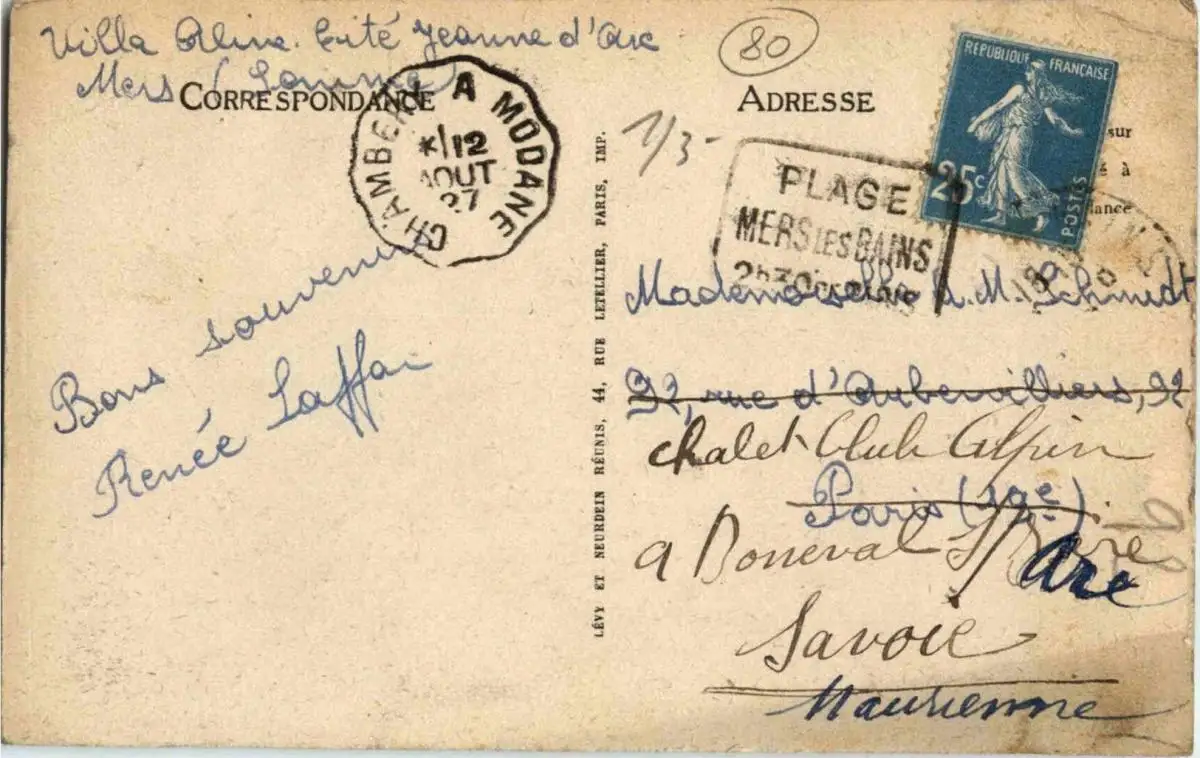 Villa Aline. Cité Jeanne d'Arc
Mers (Somme)
CORRESPONDANCE
CHAMBERY A MODANE
*/12
AOUT
27
Bons souvenirs
Renée
LÉVY ET NEURDEIN RÉUNIS, 44, RUE LETELLIER, PARIS, IMP.
80
ADRESSE
1/3-
REPUBLIQUE FRANÇAISE
25c
POSTES
sur
à
PLAGE
MERS LES BAINS
Mademoiselle A.M. Schmidt
92, rue d'Aubervilliers, 92
chalet Club Alpin
Paris (19e).
a Bonneval S/
Arc
Savoie
Maurienne